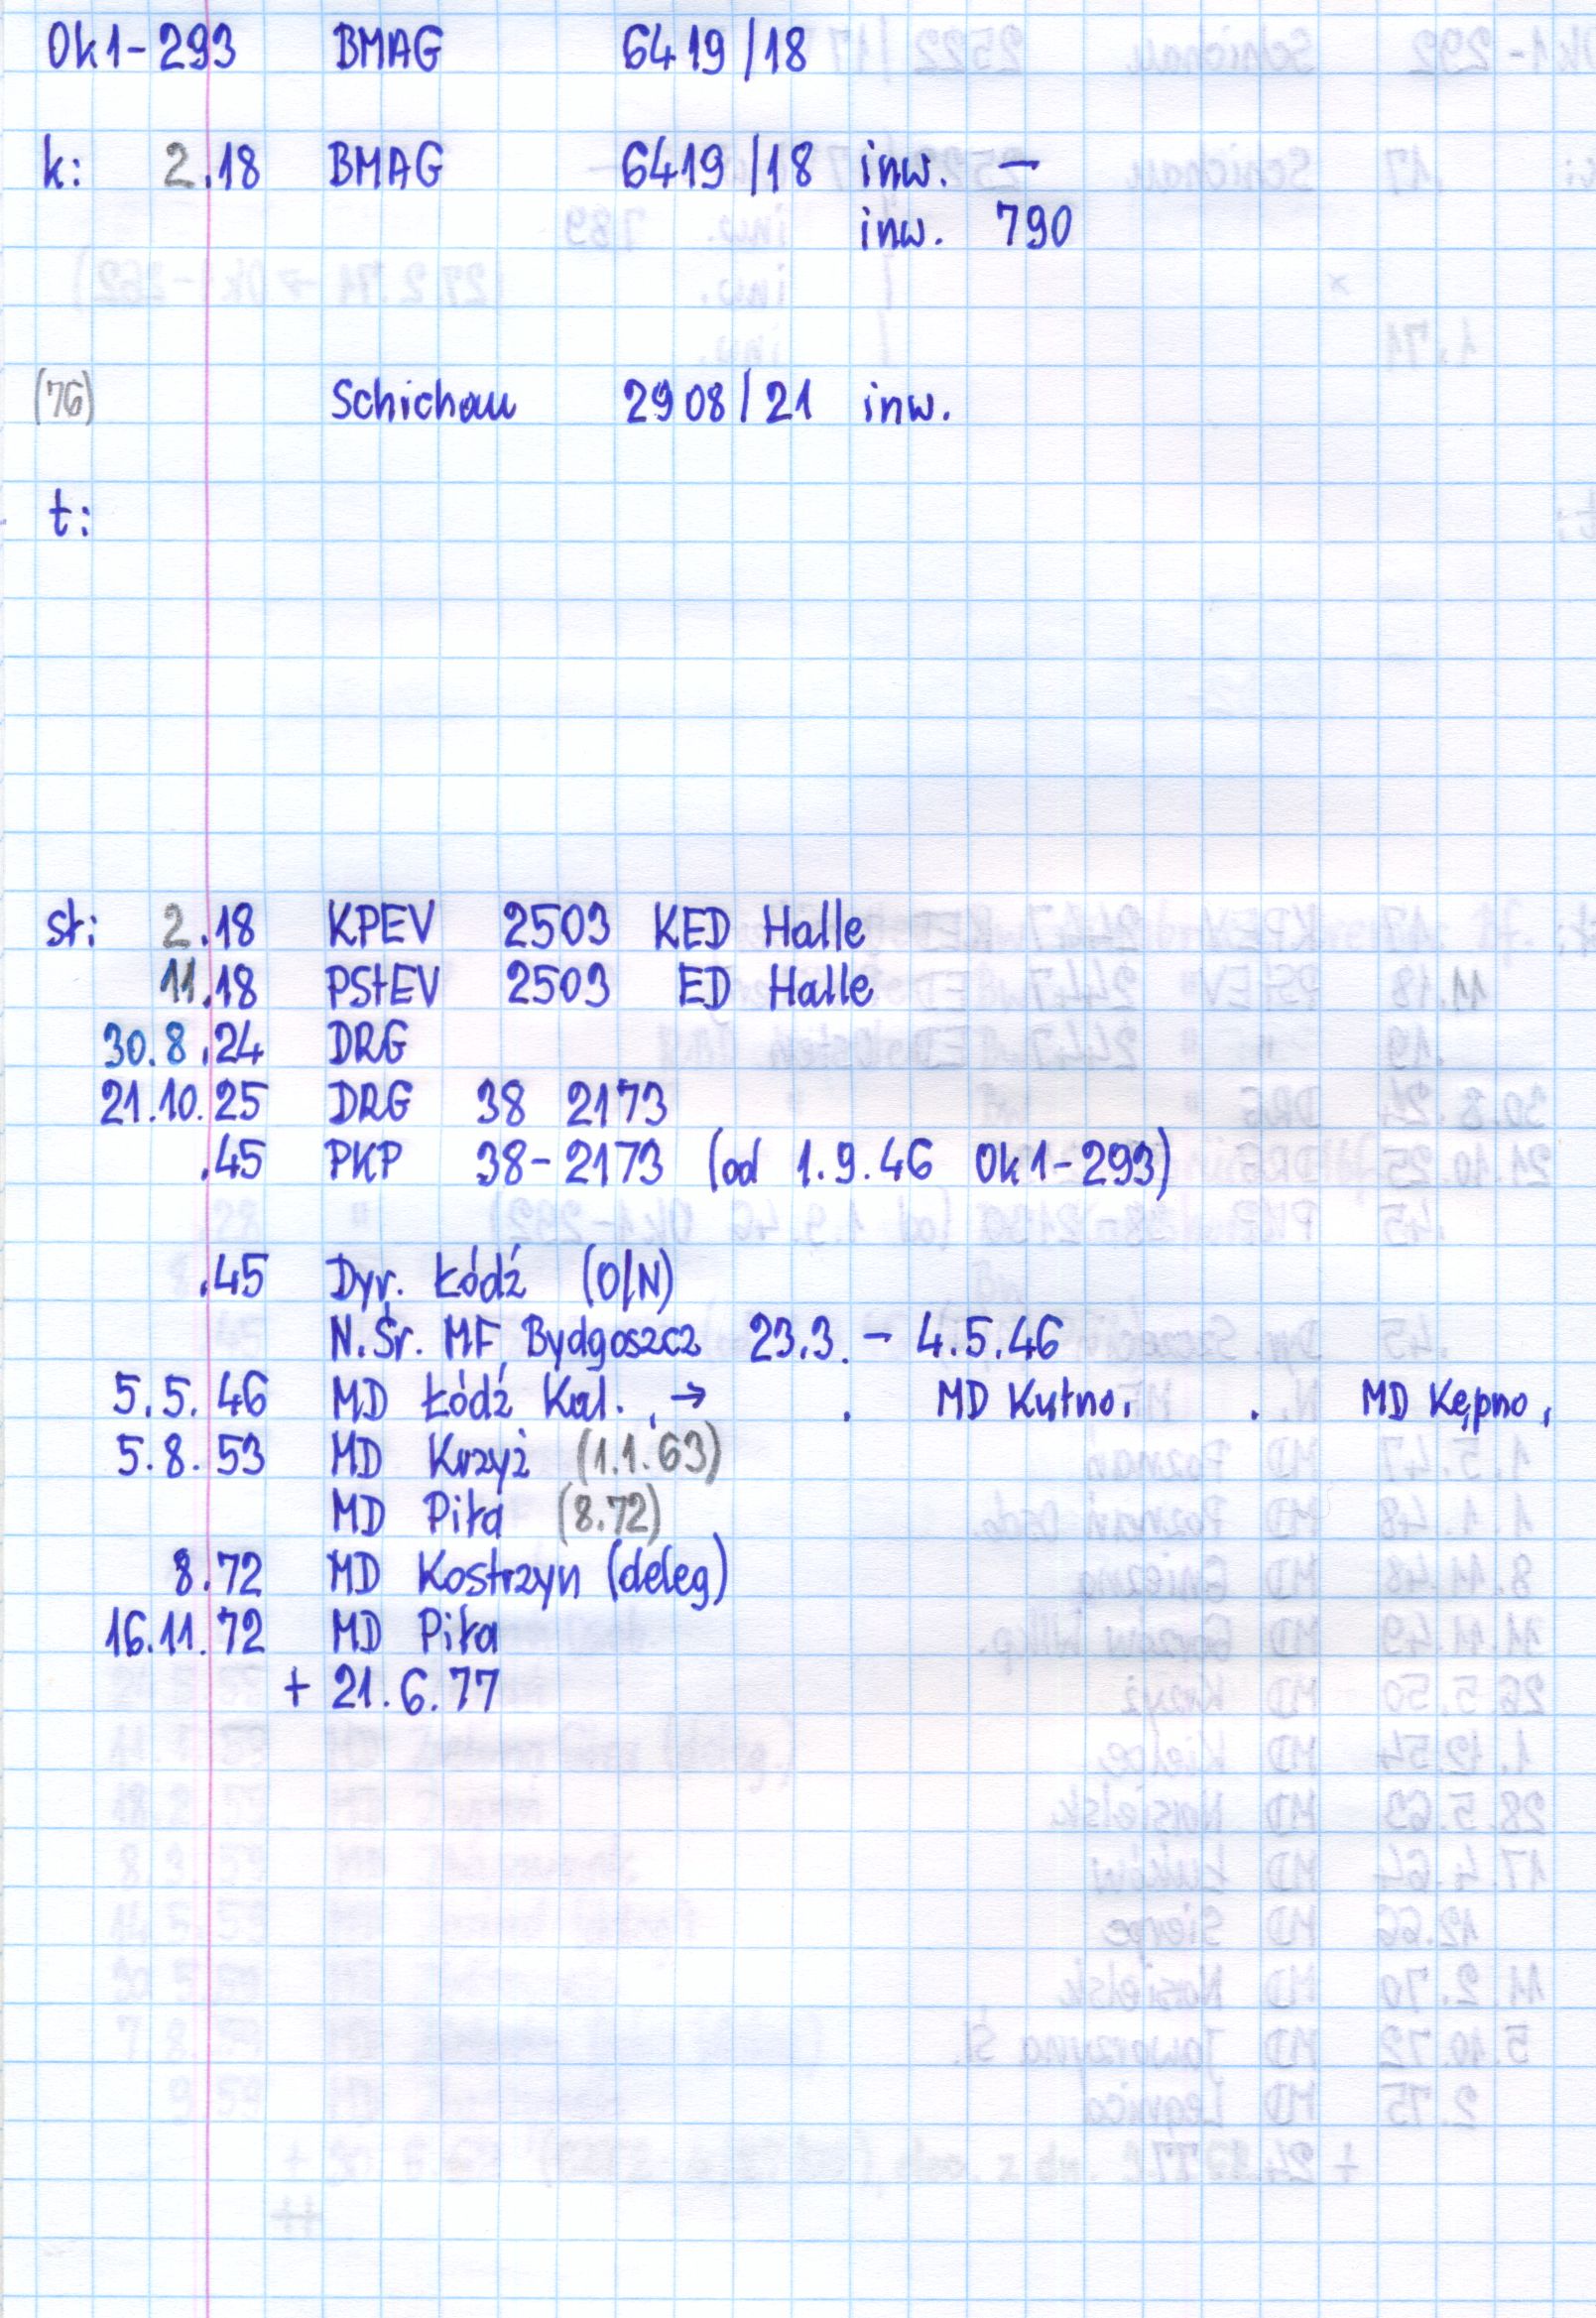 Ok1-293 BMAG 6419/18
k: 2.18 BMAG 6419/18 inw. –
inw. 790
(76) Schichau 2908/21 inw.
t:
st: 2.18 KPEV 2503 KED Halle
11.18 PStEV 2503 ED Halle
30.8.24 DRG
21.10.25 DRG 38 2173
.45 PKP 38-2173 (od 1.9.46 Ok1-293)
.45 Dyr. Łódź (O/N)
N.Śr. MF Bydgoszcz 23.3. – 4.5.46
5.5.46 MD Łódź Kal. → . MD Kutno. . MD Kępno.
5.8.53 MD Krzyż (1.1.63)
MD Piła (8.72)
8.72 MD Kostrzyn (deleg)
16.11.72 MD Piła
+ 21.6.77